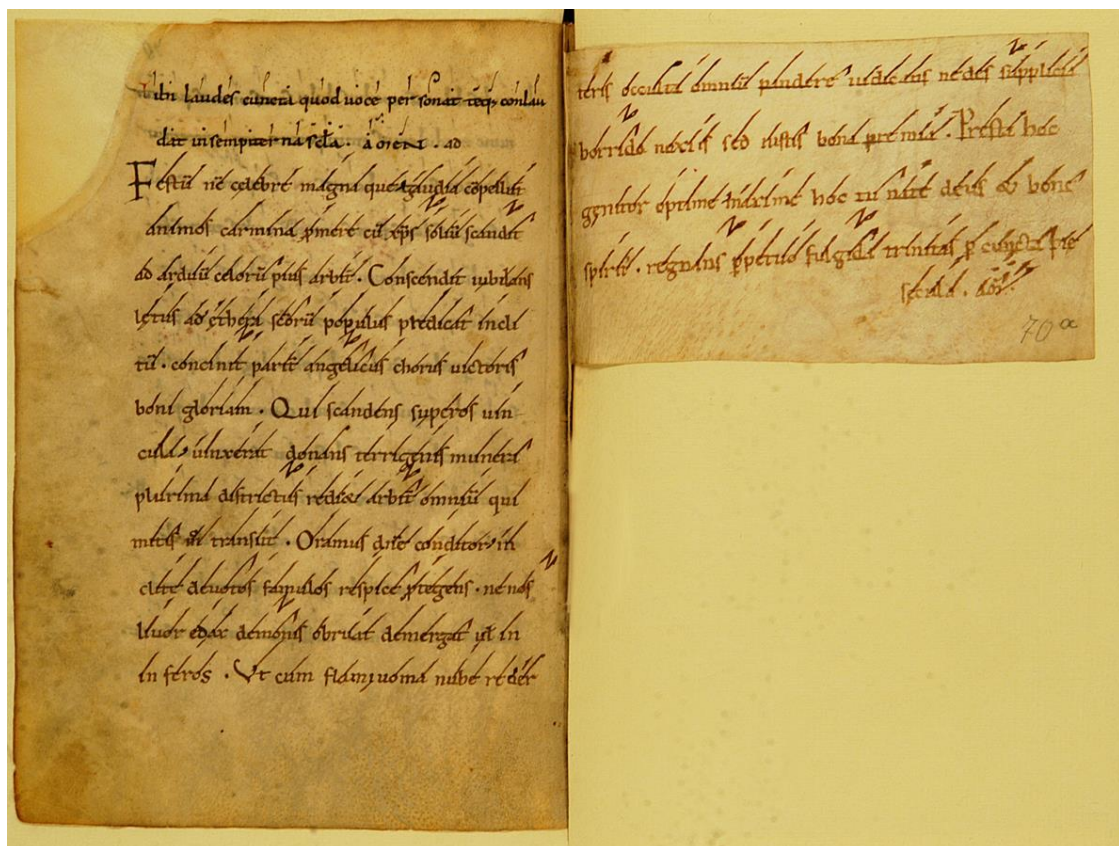 tibi laudes cuncta quod uoce per sonat teq; conlau
dat in sempiterna scla . amen . ad
Festū nc̄ celebre magna que gaudia cōpellūt
animos carmina p̄mere cū xp̄s soliū scandit
ad arduū celorū pius arbit̄ . Conscendit iubilans
letus ad ethera sc̄orū populus predicat incli
tū . concinit parit̄ angelicus chorus uictoris
boni gloriam . Qui scandens superos uin
cula uinxerat donans terrigenis munera
plurima districtus rediet arbit̄ omniū qui
mitis transiit . Oramus dn̄e conditor in
clite deuotos famulos respice p̄tegens . ne nos
liuor edax demonis obruat demergat ut̄ in
in feros . Vt cum flamiuoma nube reder
teris occulta omniū pandere iudicans ne des supplicia
horrida noxiis sed iustis bona premia . Presta hoc
genitor optime maxime hoc tu nate deus & bone
spirit̄ . regnans p̄petuo fulgida trinitas p̄ cuncta pie
secula . am̄.
70 a